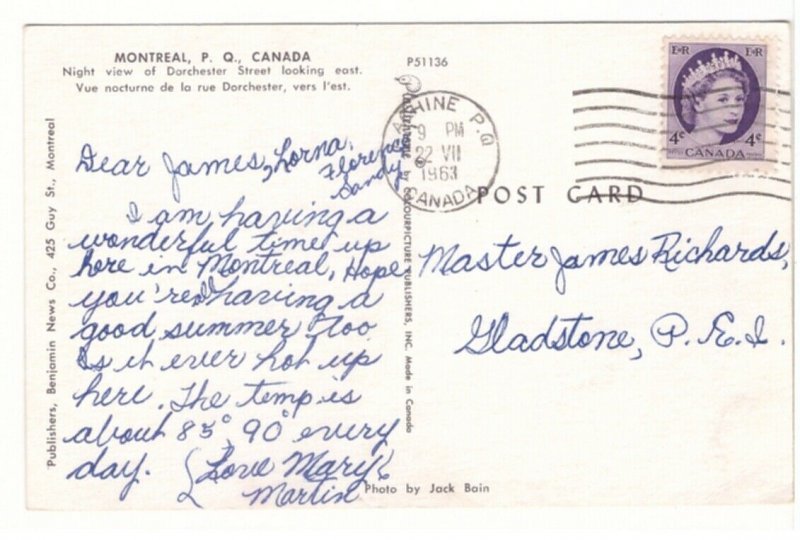 MONTREAL, P. Q., CANADA
Night view of Dorchester Street looking east.
Vue nocturne de la rue Dorchester, vers l'est.
P51136
Publishers, Benjamin News Co., 425 Guy St., Montreal
Dear James, Lorna,
Florence
Sandy
I am having a
wonderful time up
here in Montreal, Hope
you're all having a
good summer too
Is it ever hot up
here. The temp is
about 85° 90° every
day. (Love Mary
Martin
by COLOURPICTURE PUBLISHERS, INC. Made in Canada
LACHINE P.Q
9 PM
22 VII
1963
CANADA
E R E R
4c 4c
CANADA
POST CARD
Master James Richards,
Gladstone, P.E.I.
Photo by Jack Bain